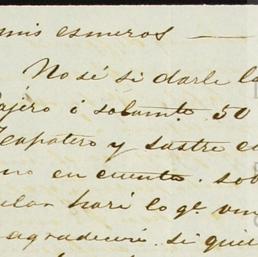 mis esmeros —
No sé si darle la
ajero i solamte. 50
Zapatero y sastre co
no en cuenta. sob
ular haré lo qe. vm
agradeceré. si quie